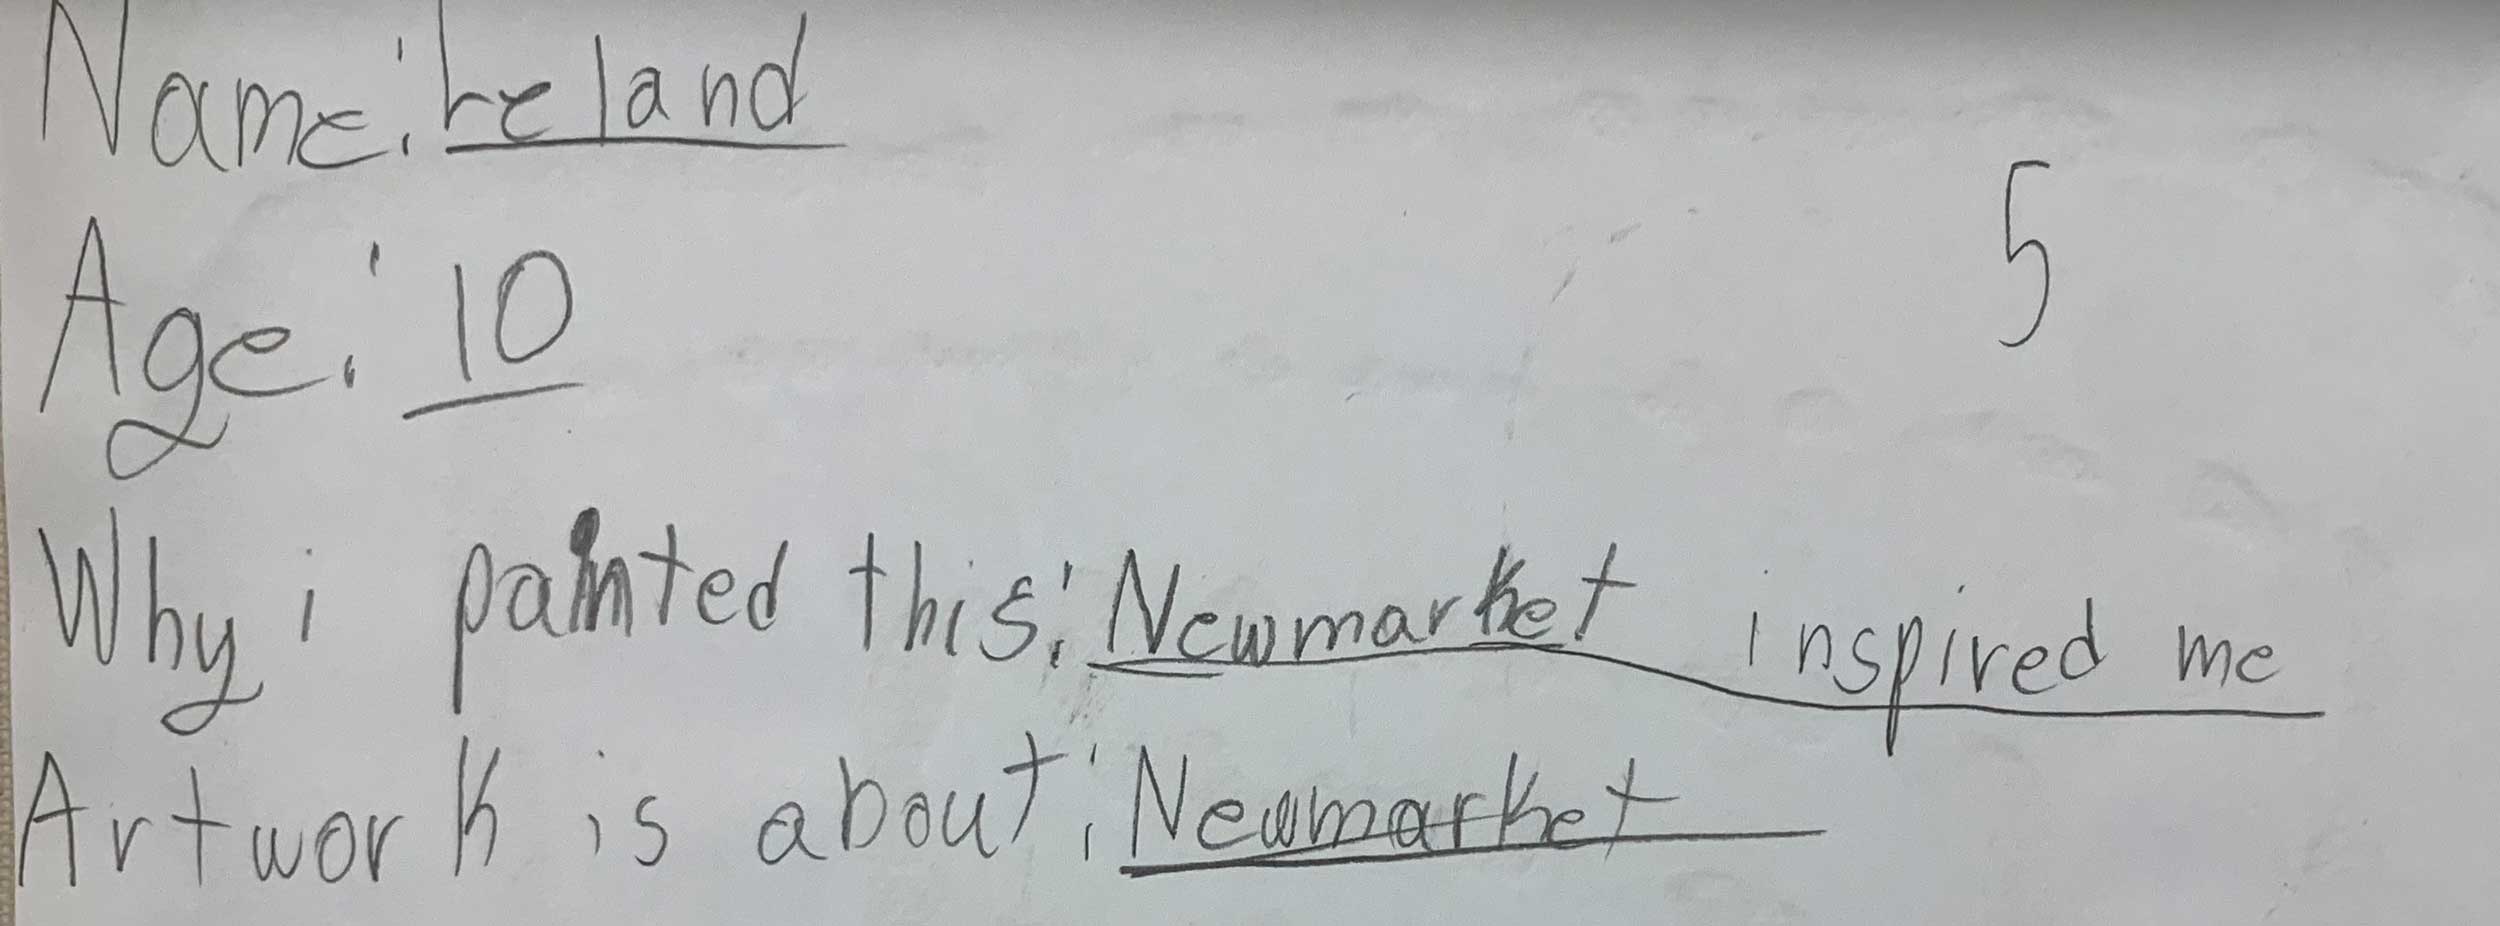 Name: Ireland
5
Age: 10
Why i painted this: Newmarket inspired me
Artwork is about: Newmarket